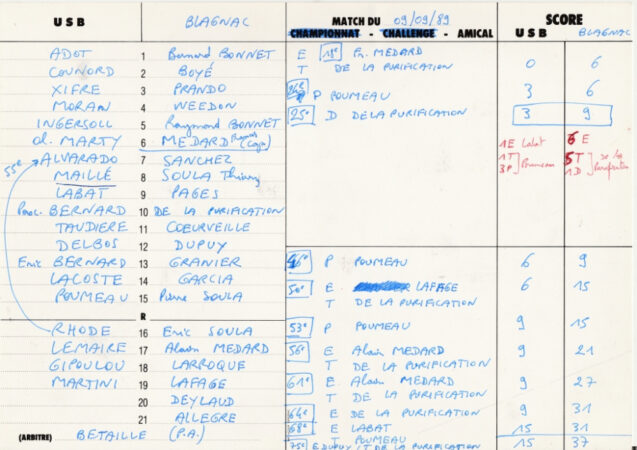 U S B BLAGNAC MATCH DU 09/09/89 SCORE
CHAMPIONNAT - CHALLENGE - AMICAL U S B BLAGNAC
ADOT 1 Bernard BONNET
CONNORD 2 BOYÉ
XIFRE 3 PRANDO
MORAN 4 WEEDON
INGERSOLL 5 Raymond BONNET
d. MARTY 6 MEDARD (Cap)
ALVARADO 7 SANCHEZ
55e
MAILLÉ 8 SOULA Thierry
LABAT 9 PAGES
BERNARD 10 DE LA PURIFICATION
TAUDIERE 11 COEURVEILLE
DELBOS 12 DUPUY
Eric BERNARD 13 GRANIER
LACOSTE 14 GARCIA
POUMEAU 15 Pierre SOULA
R
RHODE 16 Eric SOULA
LEMAIRE 17 Alain MEDARD
GIPOULOU 18 LARROQUE
MARTINI 19 LAFAGE
20 DEYLAUD
21 ALLEGRE
(ARBITRE) BETAILLE (P.A.)
E MEDARD 0 6
T DE LA PURIFICATION
P POUMEAU 3 6
25e D DE LA PURIFICATION 3 9
1E Labat 6 E
1T 5T de la
3P Poumeau 1D Purification
P POUMEAU 6 9
50e E LAFAGE 6 15
T DE LA PURIFICATION
53e P POUMEAU 9 15
56e E Alain MEDARD 9 21
T DE LA PURIFICATION
61e E Alain MEDARD 9 27
T DE LA PURIFICATION
64e E DE LA PURIFICATION 9 31
68e E LABAT 15 31
T POUMEAU
75e E DUPUY / T DE LA PURIFICATION 15 37